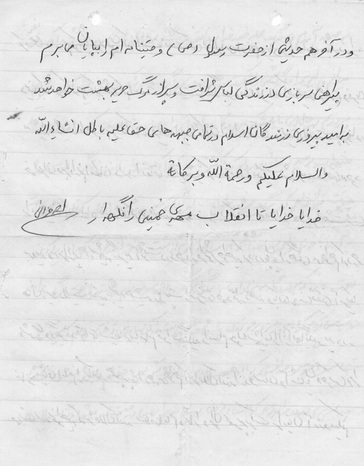 و در آخر هم حدیثی از حضرت رسول (ص) وصیتنامه ام را بپایان می برم
پیراهن سربازی در زندگی لباس شرافت و پس از مرگ حریر بهشت خواهد شد
به امید پیروزی رزمندگان اسلام در تمامی جبهه های حق علیه باطل انشاءالله
والسلام علیکم و رحمة الله و برکاته
خدایا خدایا تا انقلاب مهدی خمینی را نگهدار